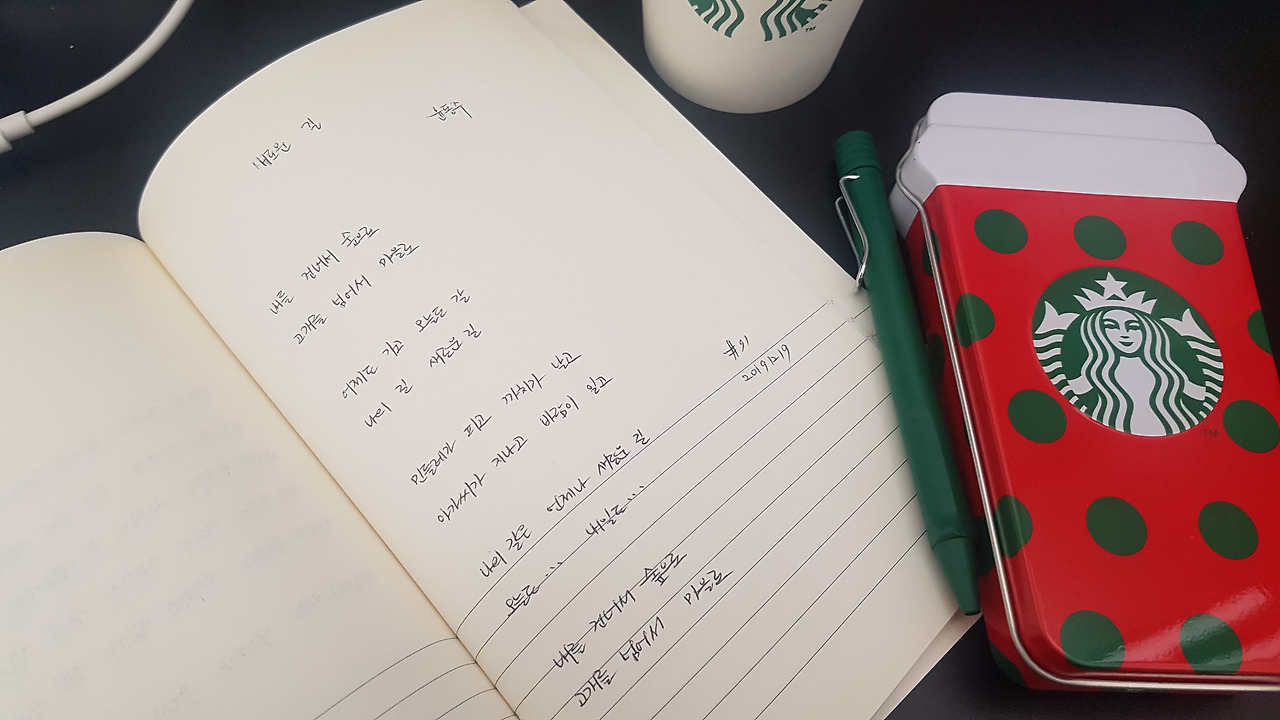 새로운 길
윤동주
내를 건너서 숲으로
고개를 넘어서 마을로
어제도 가고 오늘도 갈
나의 길 새로운 길
민들레가 피고 까치가 날고
아가씨가 지나고 바람이 일고
나의 길은 언제나 새로운 길
오늘도.... 내일도....
내를 건너서 숲으로
고개를 넘어서 마을로
20191219
TM
TM